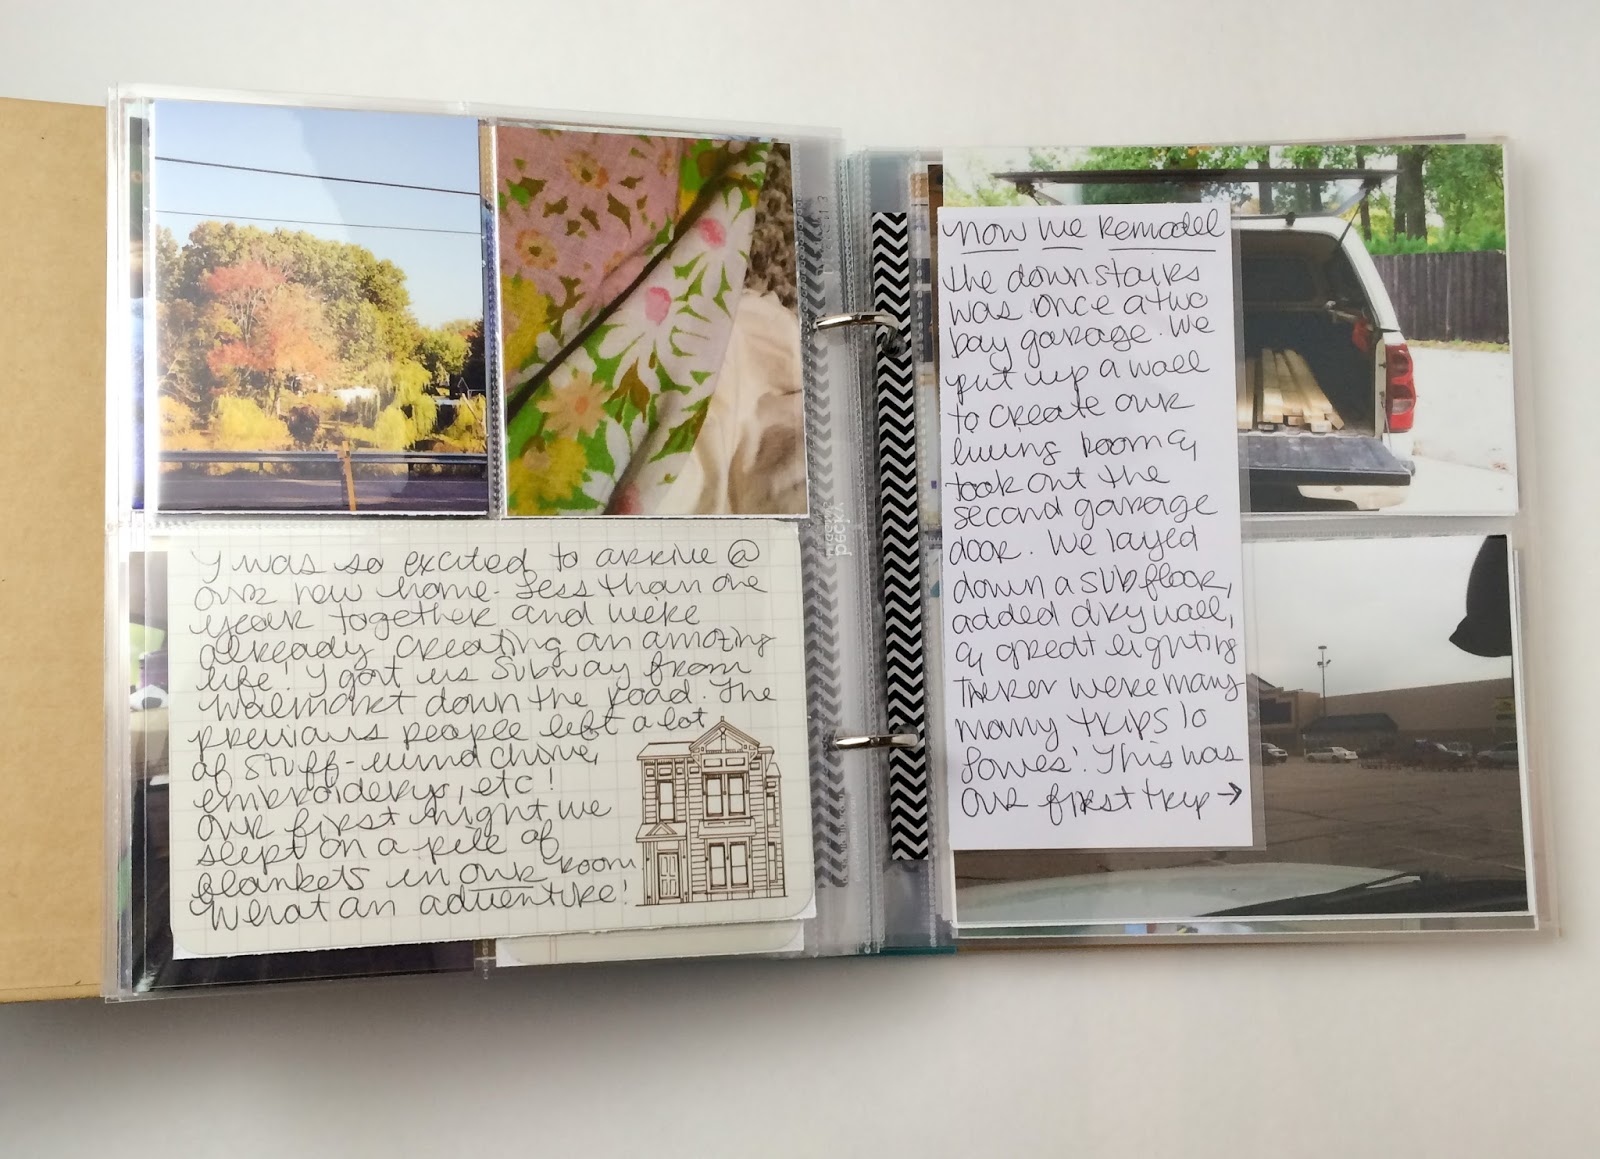 I was so excited to arrive @
our new home. Less than one
year together and we're
already creating an amazing
life! I got us Subway from
Walmart down the road. The
previous people left a lot
of stuff - wind chime,
embroiderys, etc!
Our first night we
slept on a pile of
blankets in our room
What an adventure!
Now We Remodel
The downstairs
was once a two
bay garage. We
put up a wall
to create our
living room &
took out the
second garage
door. We layed
down a subfloor,
added drywall,
& great lighting
Therer were many
many trips to
Lowes'. This was
our first trip →